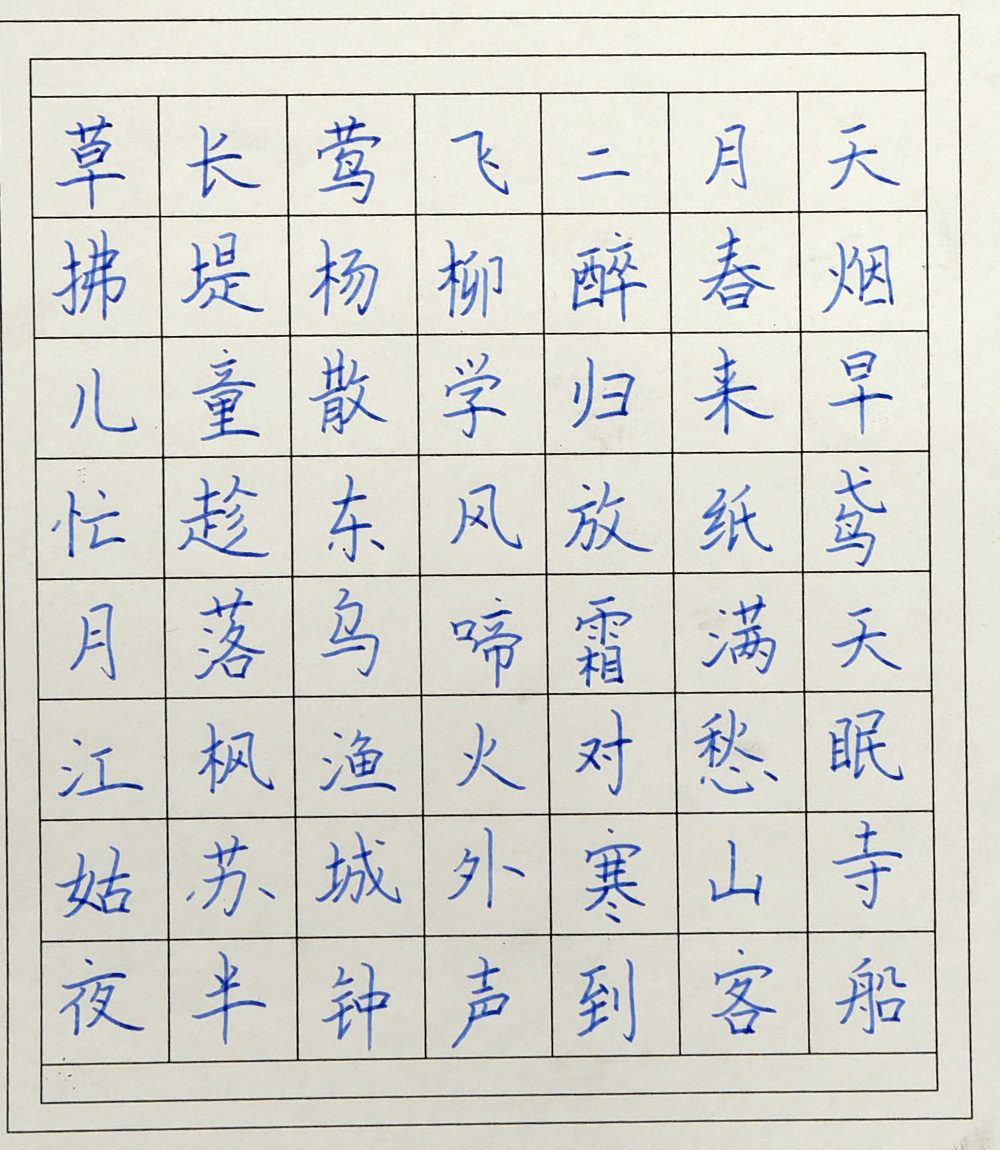 草长莺飞二月天
拂堤杨柳醉春烟
儿童散学归来早
忙趁东风放纸鸢
月落乌啼霜满天
江枫渔火对愁眠
姑苏城外寒山寺
夜半钟声到客船